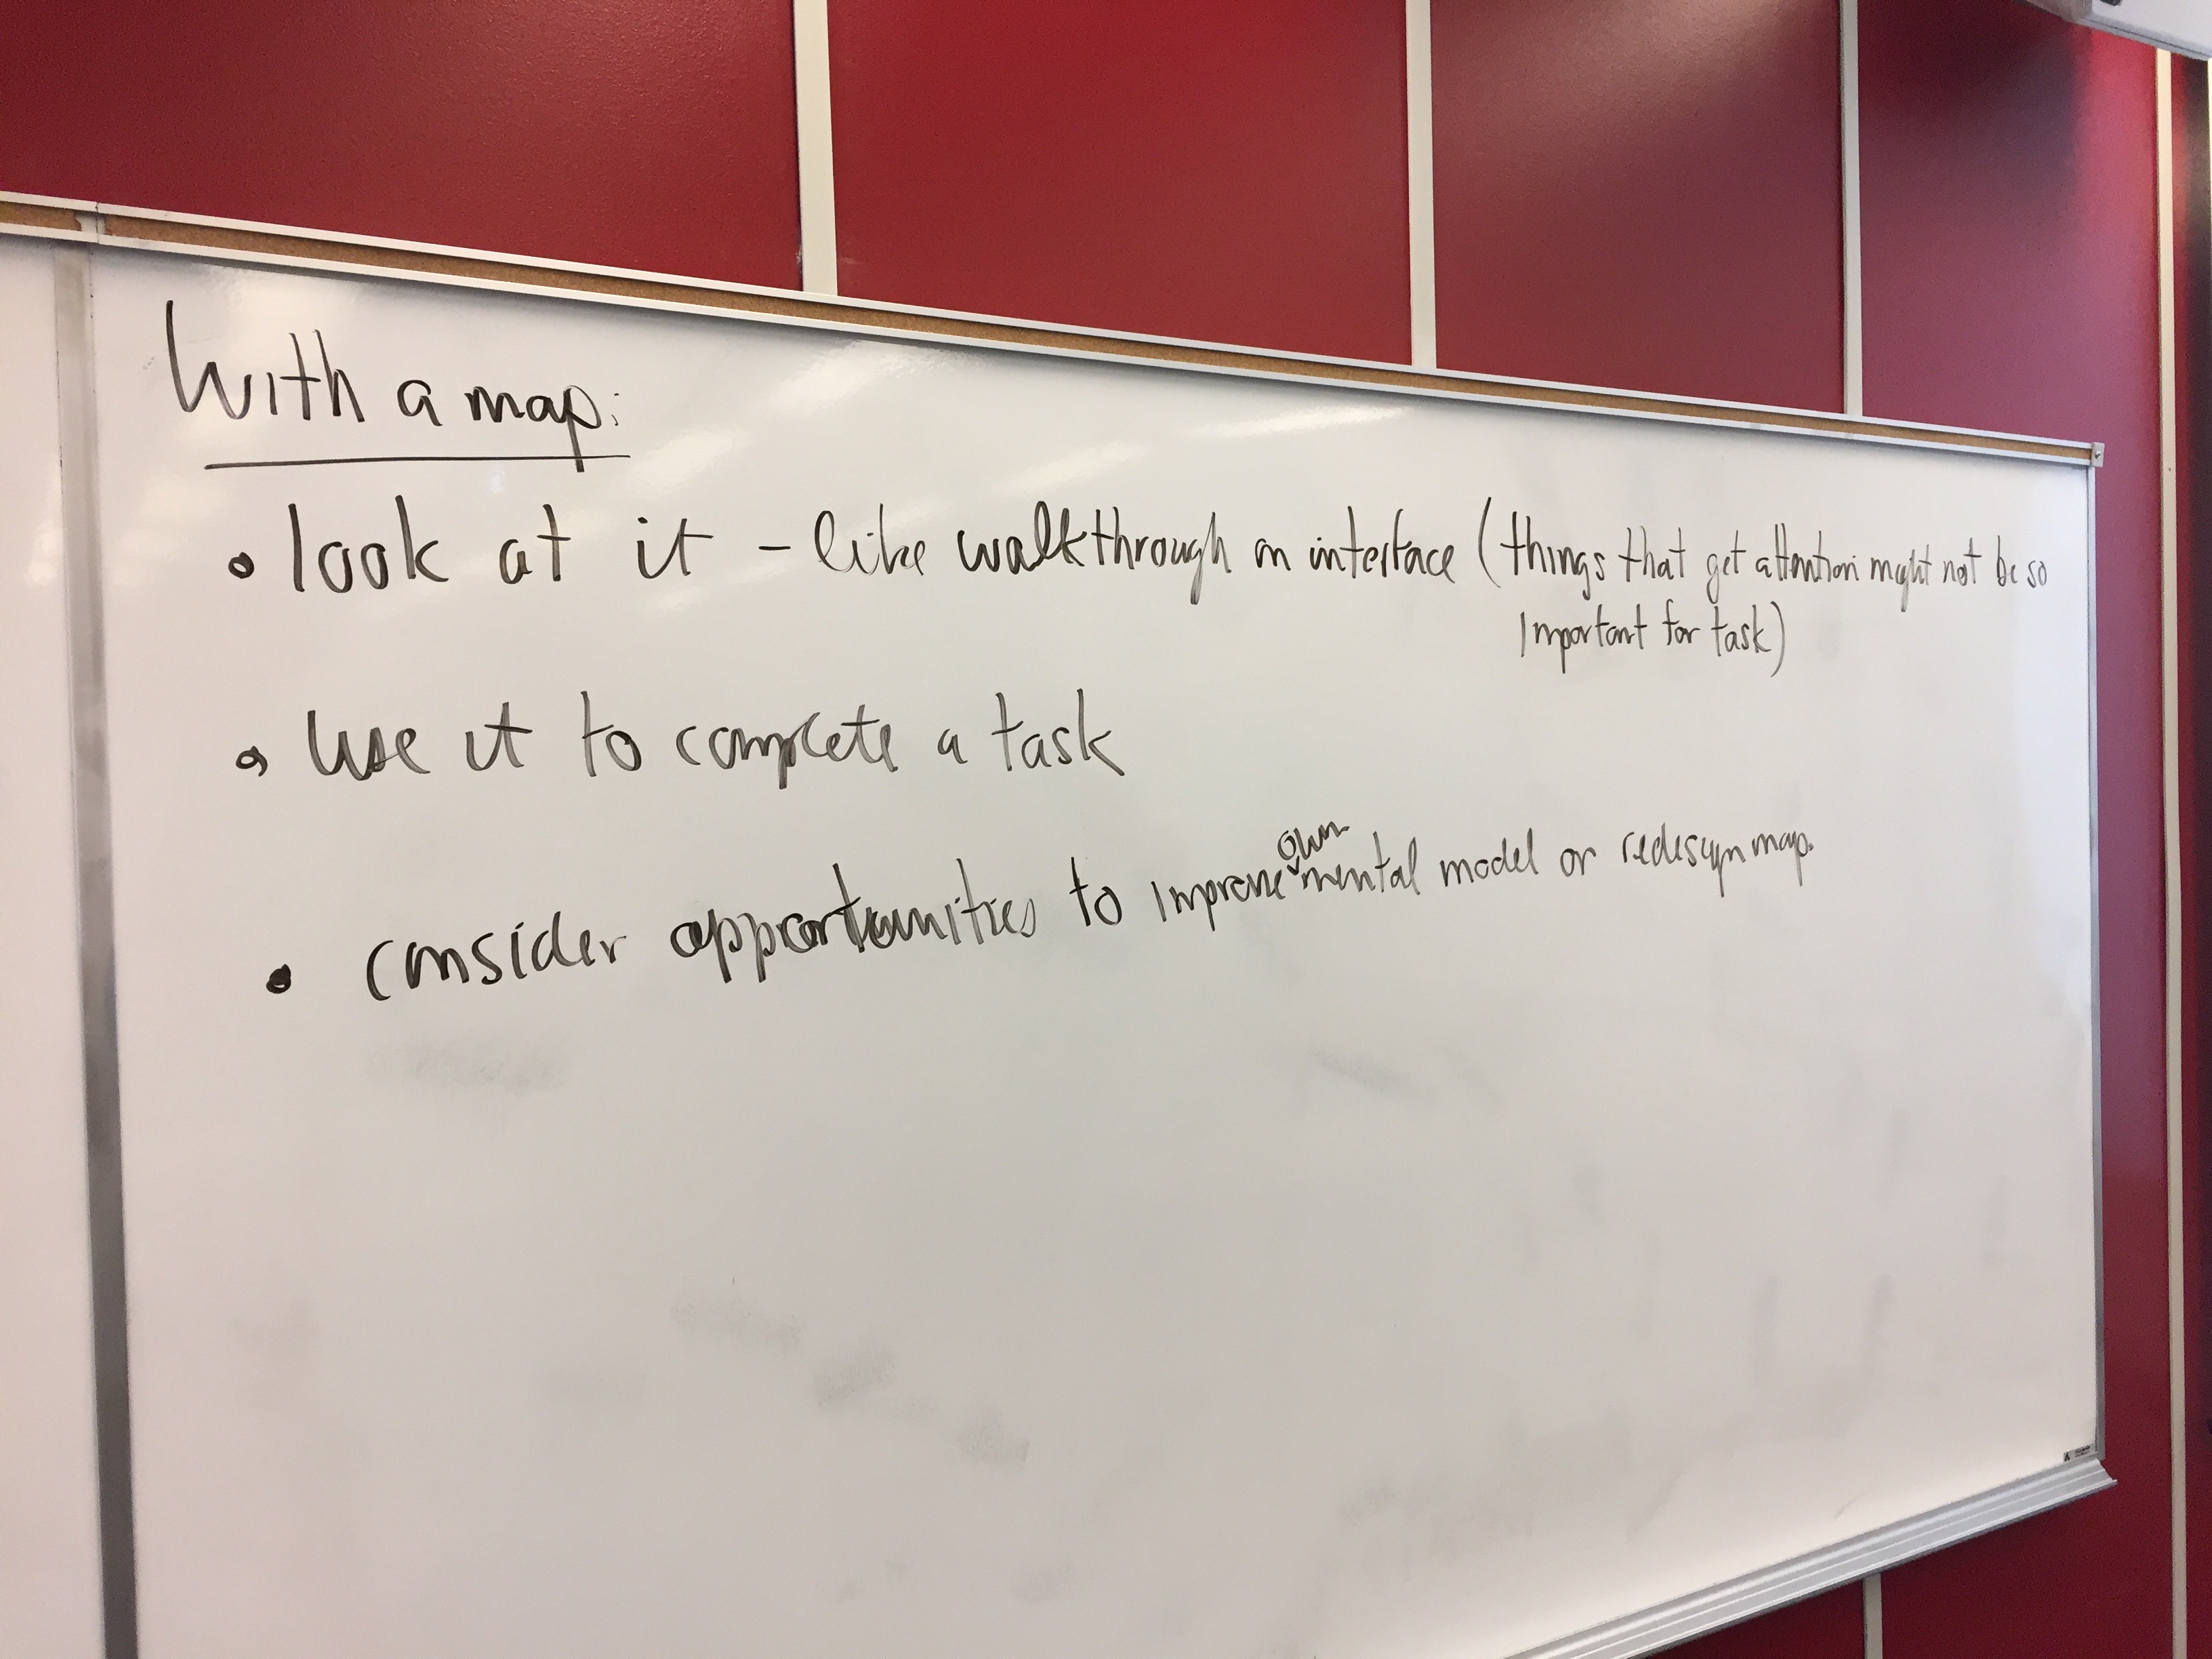 With a map:
• look at it - like walkthrough on interface (things that get attention might not be so
important for task)
• use it to complete a task
• consider opportunities to improve own mental model or redesign map.